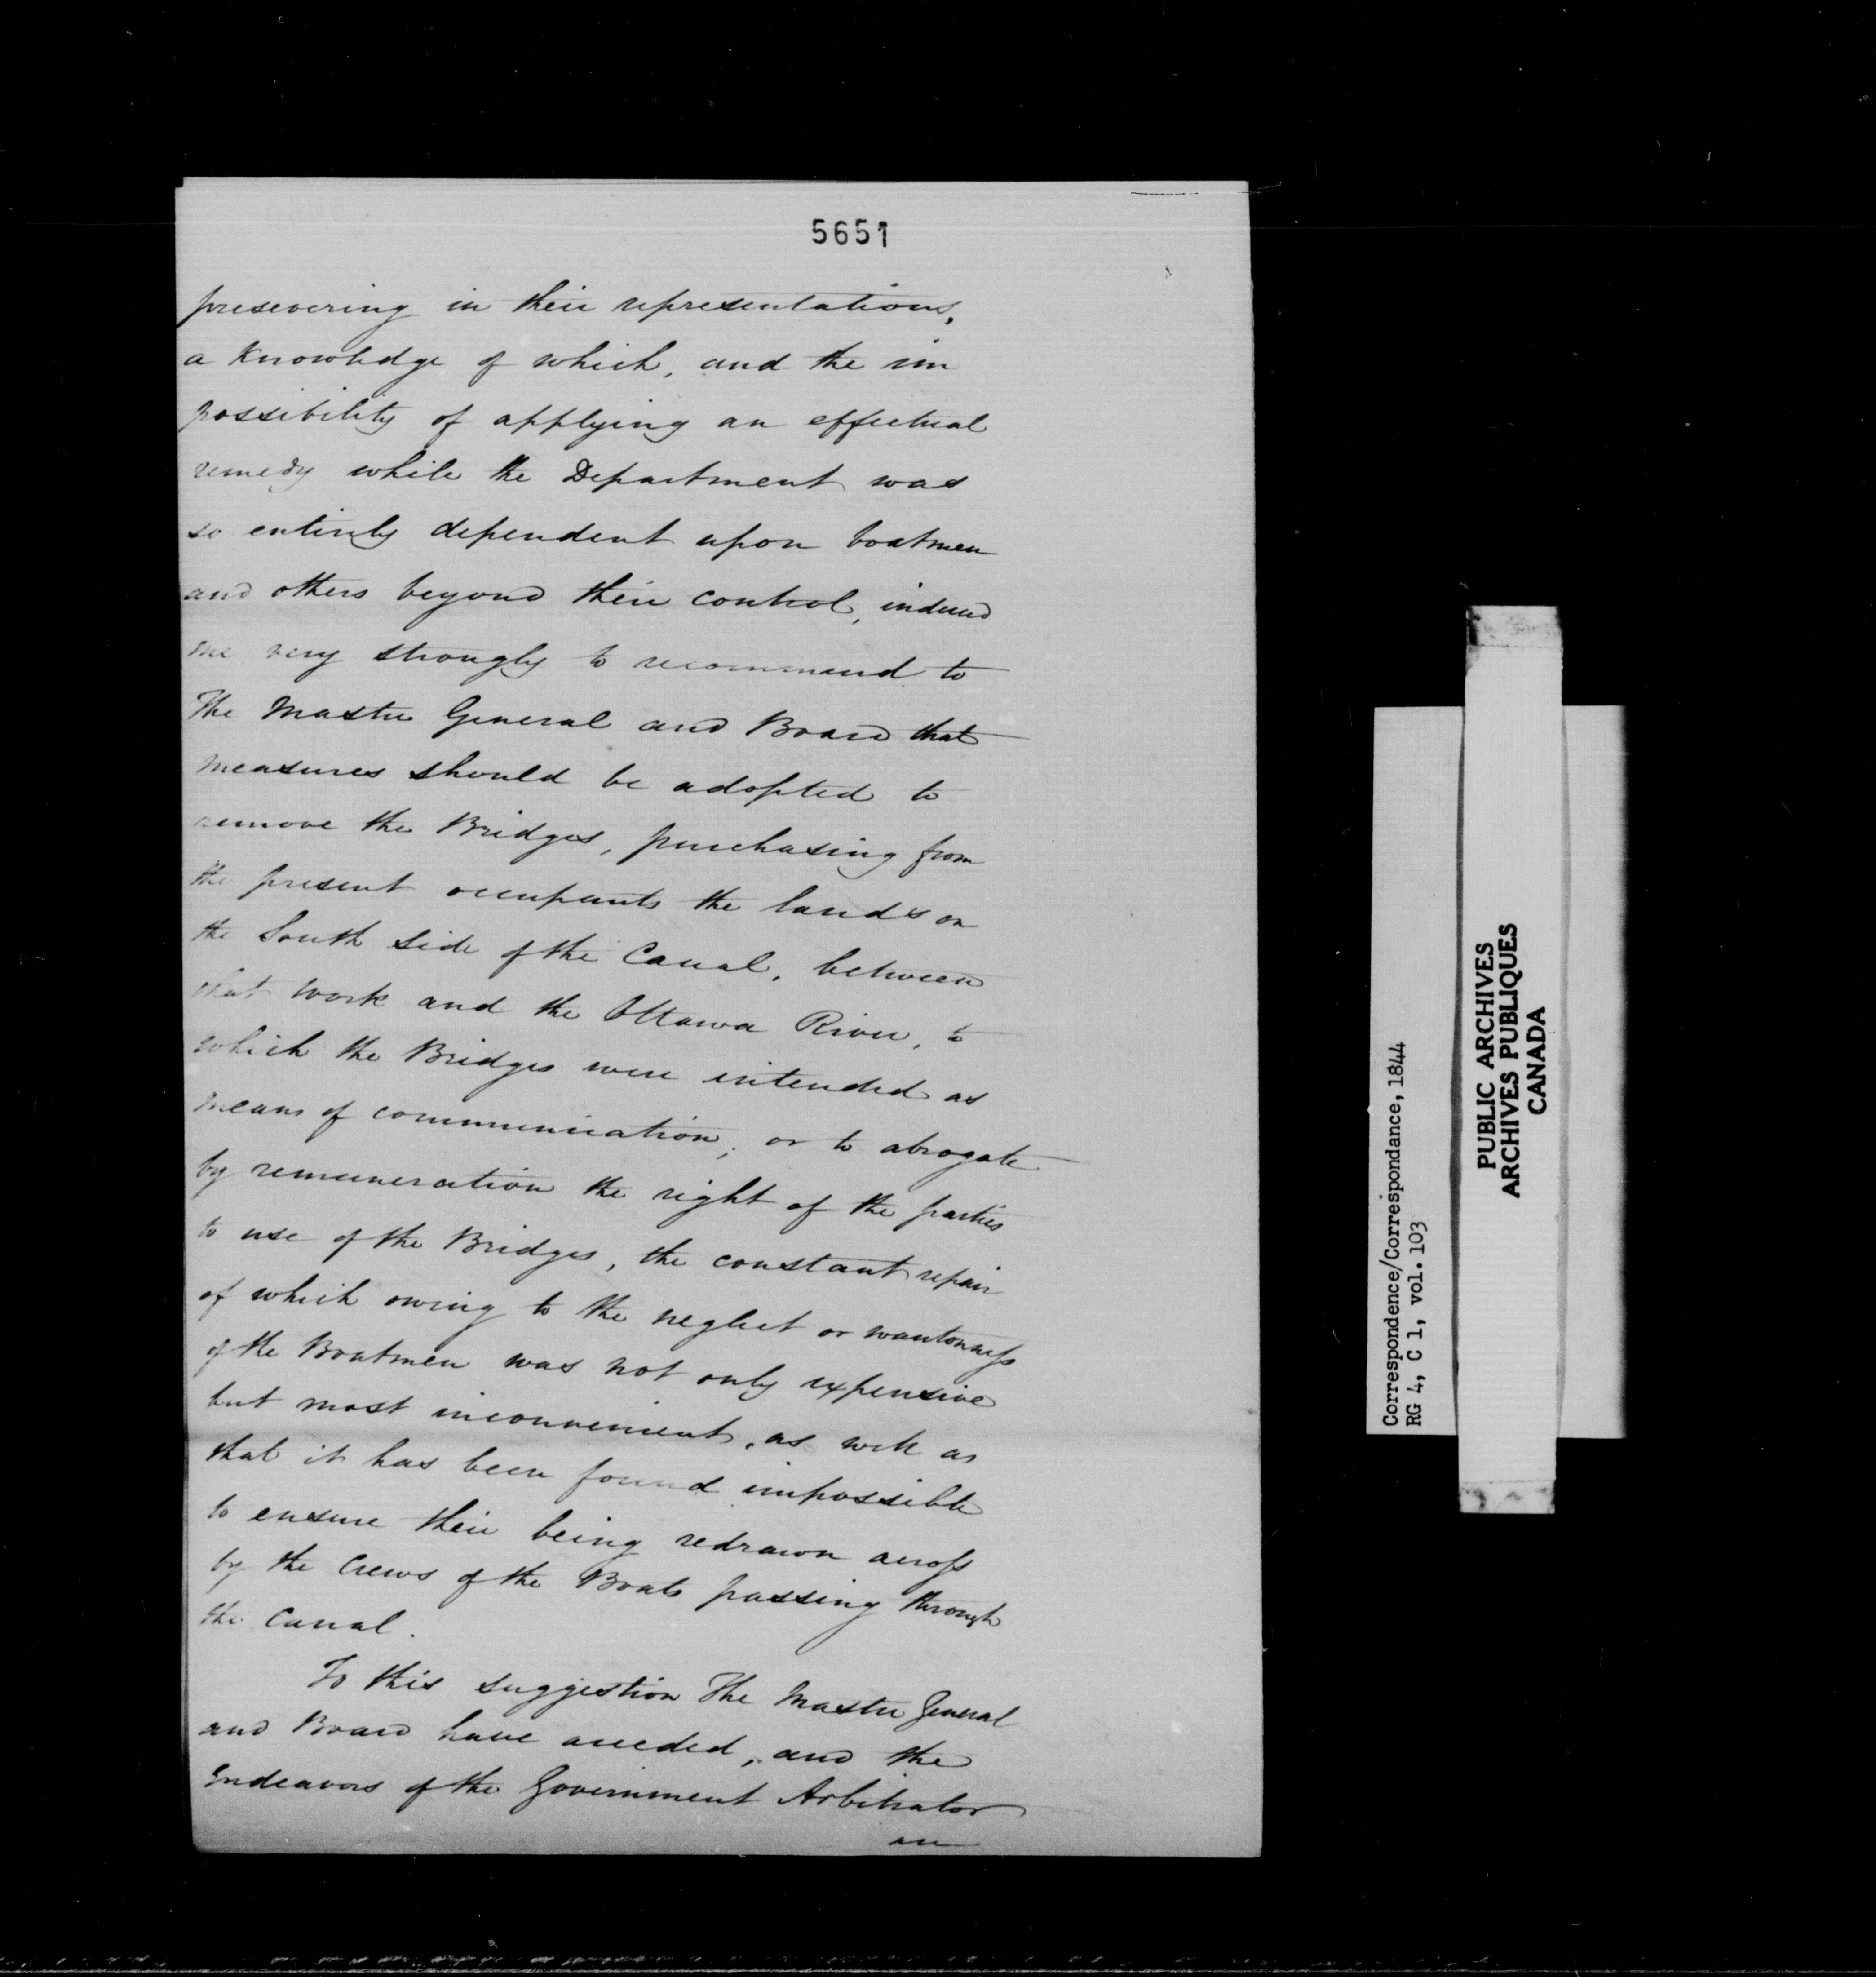 5651
presevering in their representations,
a Knowledge of which, and the im
possibility of applying an effectual
remedy while the Department was
so entirely dependent upon boatmen
and others beyond their control, induced
me very strongly to recommend to
The Master General and Board that
measures should be adopted to
remove the Bridges, purchasing from
the present occupants the lands on
the South Side of the Canal, between
that work and the Ottawa River, to
which the Bridges were intended as
means of communication, or to abrogate
by remuneration the right of the parties
to use of the Bridges, the constant repair
of which owing to the neglect or wantonness
of the Boatmen was not only expensive
but most inconvenient, as well as
that it has been found impossible
to ensure their being redrawn across
by the Crews of the Boats passing through
the Canal.
To this suggestion The Master General
and Board have acceded, and the
Endeavors of the Government Arbitrator
are
Correspondence/Correspondance, 1844
RG 4, C 1, vol. 103
PUBLIC ARCHIVES
ARCHIVES PUBLIQUES
CANADA